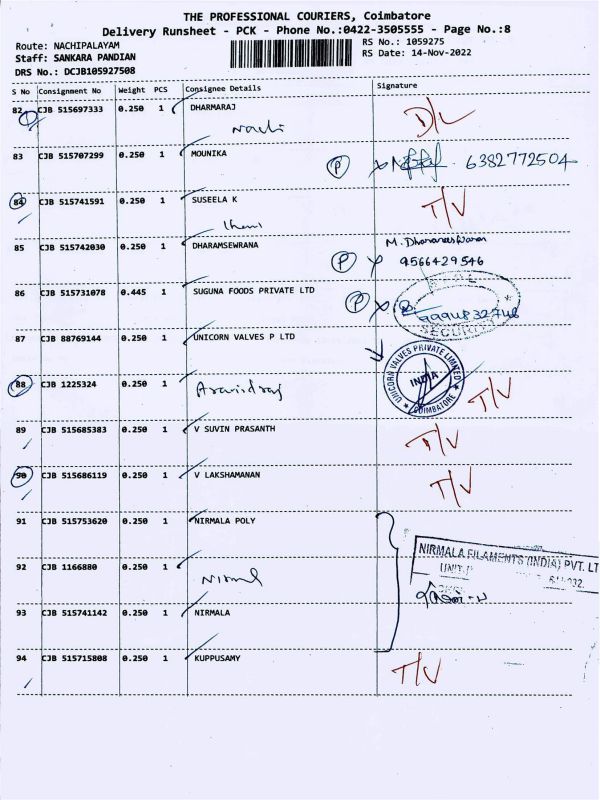 THE PROFESSIONAL COURIERS, Coimbatore
Delivery Runsheet - PCK - Phone No.:0422-3505555 - Page No.:8
Route: NACHIPALAYAM
RS No.: 1059275
Staff: SANKARA PANDIAN
RS Date: 14-Nov-2022
DRS No.: DCJB105927508
S No Consignment No Weight PCS Consignee Details Signature
82 CJB 515697333 0.250 1 DHARMARAJ D/L
83 CJB 515707299 0.250 1 MOUNIKA P 6382772504
84 CJB 515741591 0.250 1 SUSEELA K T/V
85 CJB 515742030 0.250 1 DHARAMSEWRANA M. Dharaneeswaran
P 9566429546
86 CJB 515731078 0.445 1 SUGUNA FOODS PRIVATE LTD P 9994832748
SECURITY
87 CJB 88769144 0.250 1 UNICORN VALVES P LTD
UNICORN VALVES PRIVATE LIMITED
INDIA
COIMBATORE
88 CJB 1225324 0.250 1 Aravindraj T/V
89 CJB 515685383 0.250 1 V SUVIN PRASANTH T/V
90 CJB 515686119 0.250 1 V LAKSHAMANAN T/V
91 CJB 515753620 0.250 1 NIRMALA POLY
NIRMALA FILAMENTS (INDIA) PVT. LT
UNIT
92 CJB 1166880 0.250 1 Nirmal
93 CJB 515741142 0.250 1 NIRMALA
94 CJB 515715808 0.250 1 KUPPUSAMY T/V